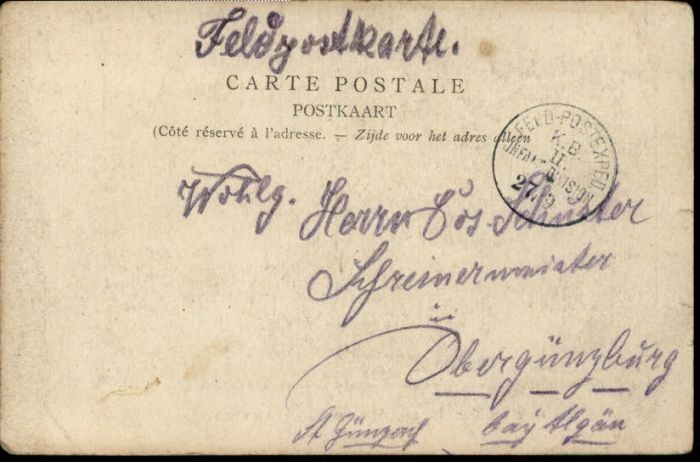 Feldpostkarte.
CARTE POSTALE
POSTKAART
(Côté réservé à l'adresse. — Zijde voor het adres alleen
FELD-POSTEXPED.
K.B.
11.
INFANT. DIVISION
27 9
Wohlg. Herrn Schuster
Schreinermeister
in
Obergünzburg
St. Günzach bay Algäu